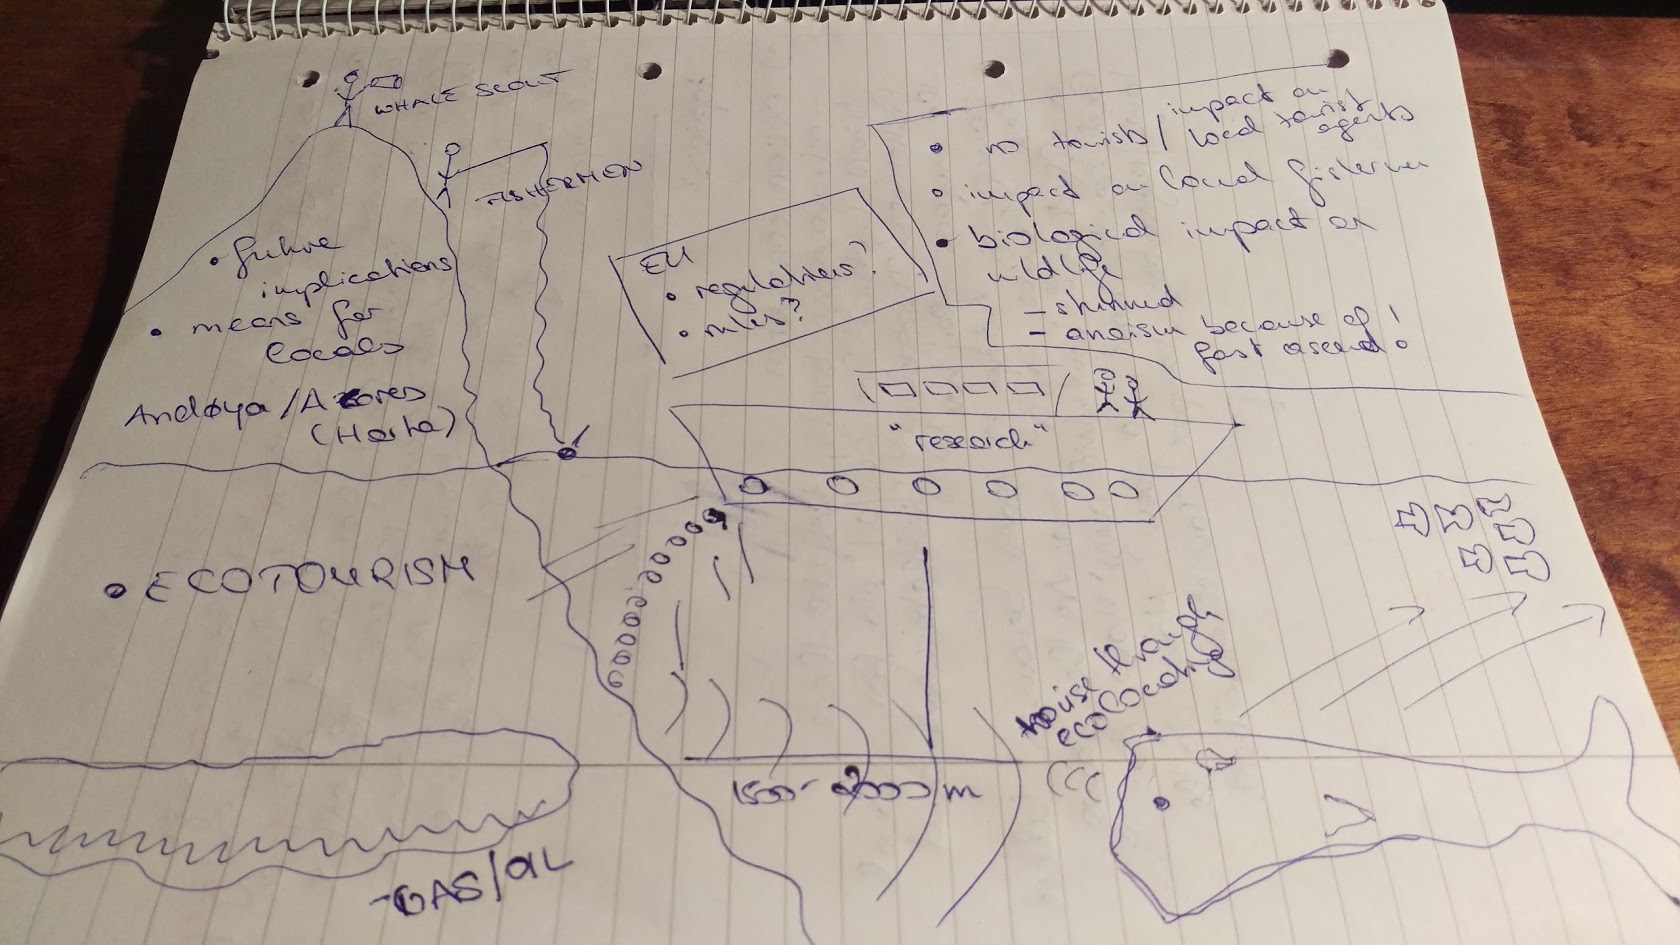 WHALE SCOUT
FISHERMEN
• future
implications
• means for
locals
Andøya / Azores
(Horta)
EU
• regulations?
• rules?
impact on
• no tourists / local tourist
agents
• impact on local fishermen
• biological impact on
wildlife
- stunned
- because of
fast ascend!
"research"
• ECOTOURISM
noise through
1500 - 2000 m
- GAS/OIL